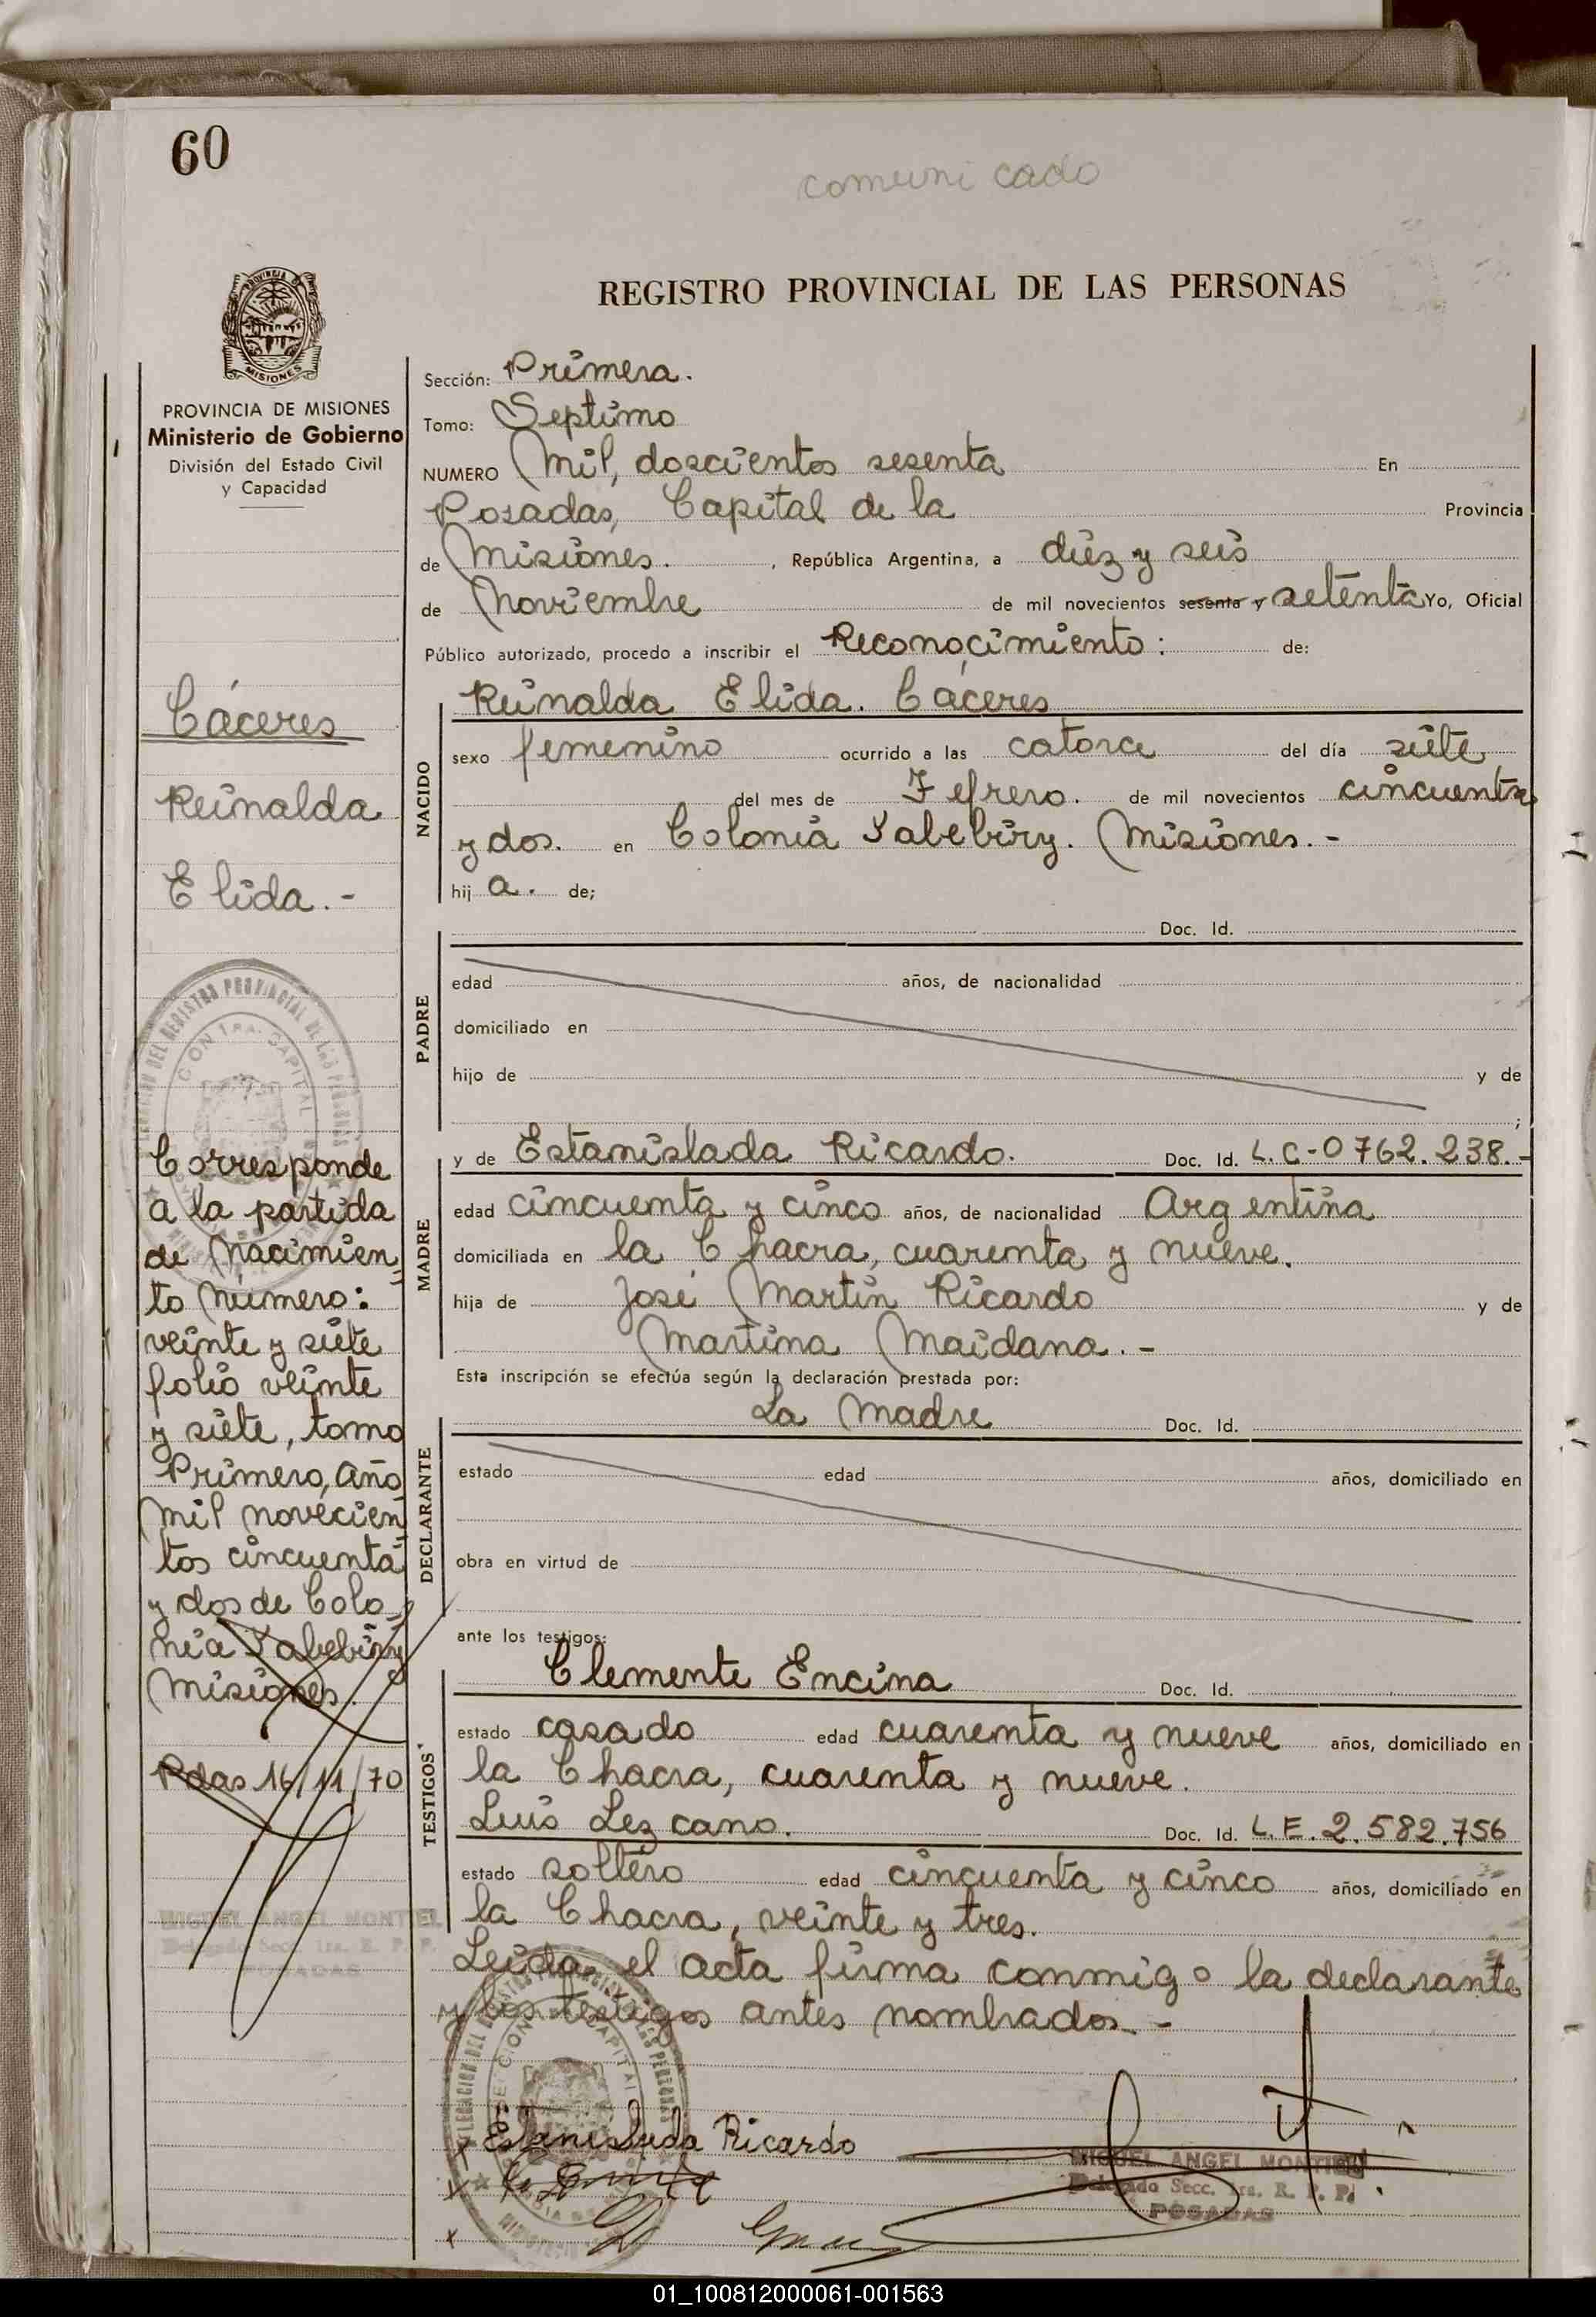 60
comunicado
REGISTRO PROVINCIAL DE LAS PERSONAS
PROVINCIA DE MISIONES
Ministerio de Gobierno
División del Estado Civil
y Capacidad
Cáceres
Reinalda
Elida.-
Corresponde
a la partida
de Nacimien
to Número:
veinte y siete
folio veinte
y siete, tomo
Primero, Año
mil novecien
tos cincuenta
y dos de Colo
nia Yabebiry
Misiones.
Pdas 16/11/70
MIGUEL ANGEL MONTIEL
Delegado Secc. 1ra. R. P. P.
POSADAS
Sección: Primera.
Tomo: Septimo
NUMERO Mil, doscientos sesenta En
Posadas, Capital de la Provincia
de Misiones. , República Argentina, a diez y seis
de Noviembre de mil novecientos sesenta y setenta Yo, Oficial
Público autorizado, procedo a inscribir el Reconocimiento: de:
Reinalda Elida. Cáceres
NACIDO
sexo femenino ocurrido a las catorce del día siete
del mes de Febrero. de mil novecientos cincuenta
y dos. en Colonia Yabebiry. Misiones.-
hij a. de;
Doc. Id.
PADRE
edad años, de nacionalidad
domiciliado en
hijo de y de
;
y de Estanislada Ricardo. Doc. Id. L.C-0762.238.-
MADRE
edad cincuenta y cinco años, de nacionalidad Argentina
domiciliada en la Chacra, cuarenta y nueve.
hija de José Martin Ricardo y de
Martina Maidana.-
Esta inscripción se efectúa según la declaración prestada por:
La Madre Doc. Id.
DECLARANTE
estado edad años, domiciliado en
obra en virtud de
ante los testigos:
Clemente Encina Doc. Id.
TESTIGOS
estado casado edad cuarenta y nueve años, domiciliado en
la Chacra, cuarenta y nueve.
Luis Lezcano. Doc. Id. L.E.2.582.756
estado soltero edad cincuenta y cinco años, domiciliado en
la Chacra, veinte y tres.
Leida el acta firma conmigo la declarante
y los testigos antes nombrados.-
x Estanislada Ricardo
x
x
MIGUEL ANGEL MONTIEL
Delegado Secc. 1ra. R. P. P.
POSADAS
01_100812000061-001563